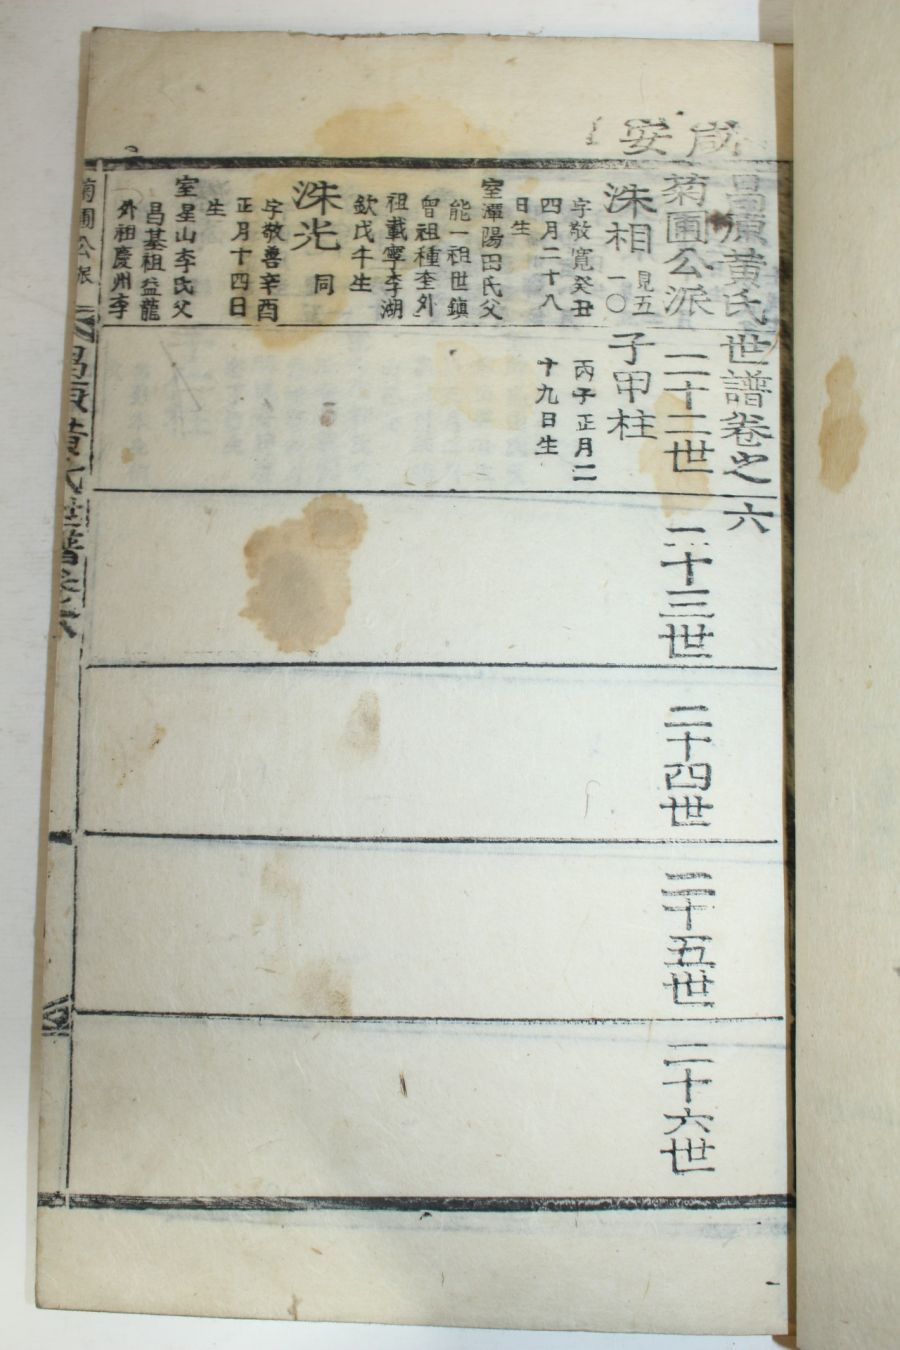 咸安
昌原黃氏世譜卷之六
菊圃公派
二十二世
二十三世
二十四世
二十五世
二十六世
洙相 見五一〇
字敬寬癸丑
四月二十八
日生
室潭陽田氏父
能一祖世鎮
曾祖種奎外
祖載寧李湖
欽戊午生
洙光 同
字敬善辛酉
正月十四日
生
室星山李氏父
昌基祖益龍
外祖慶州李
子甲柱
丙子正月二
十九日生
菊圃公派
昌原黃氏世譜卷之六